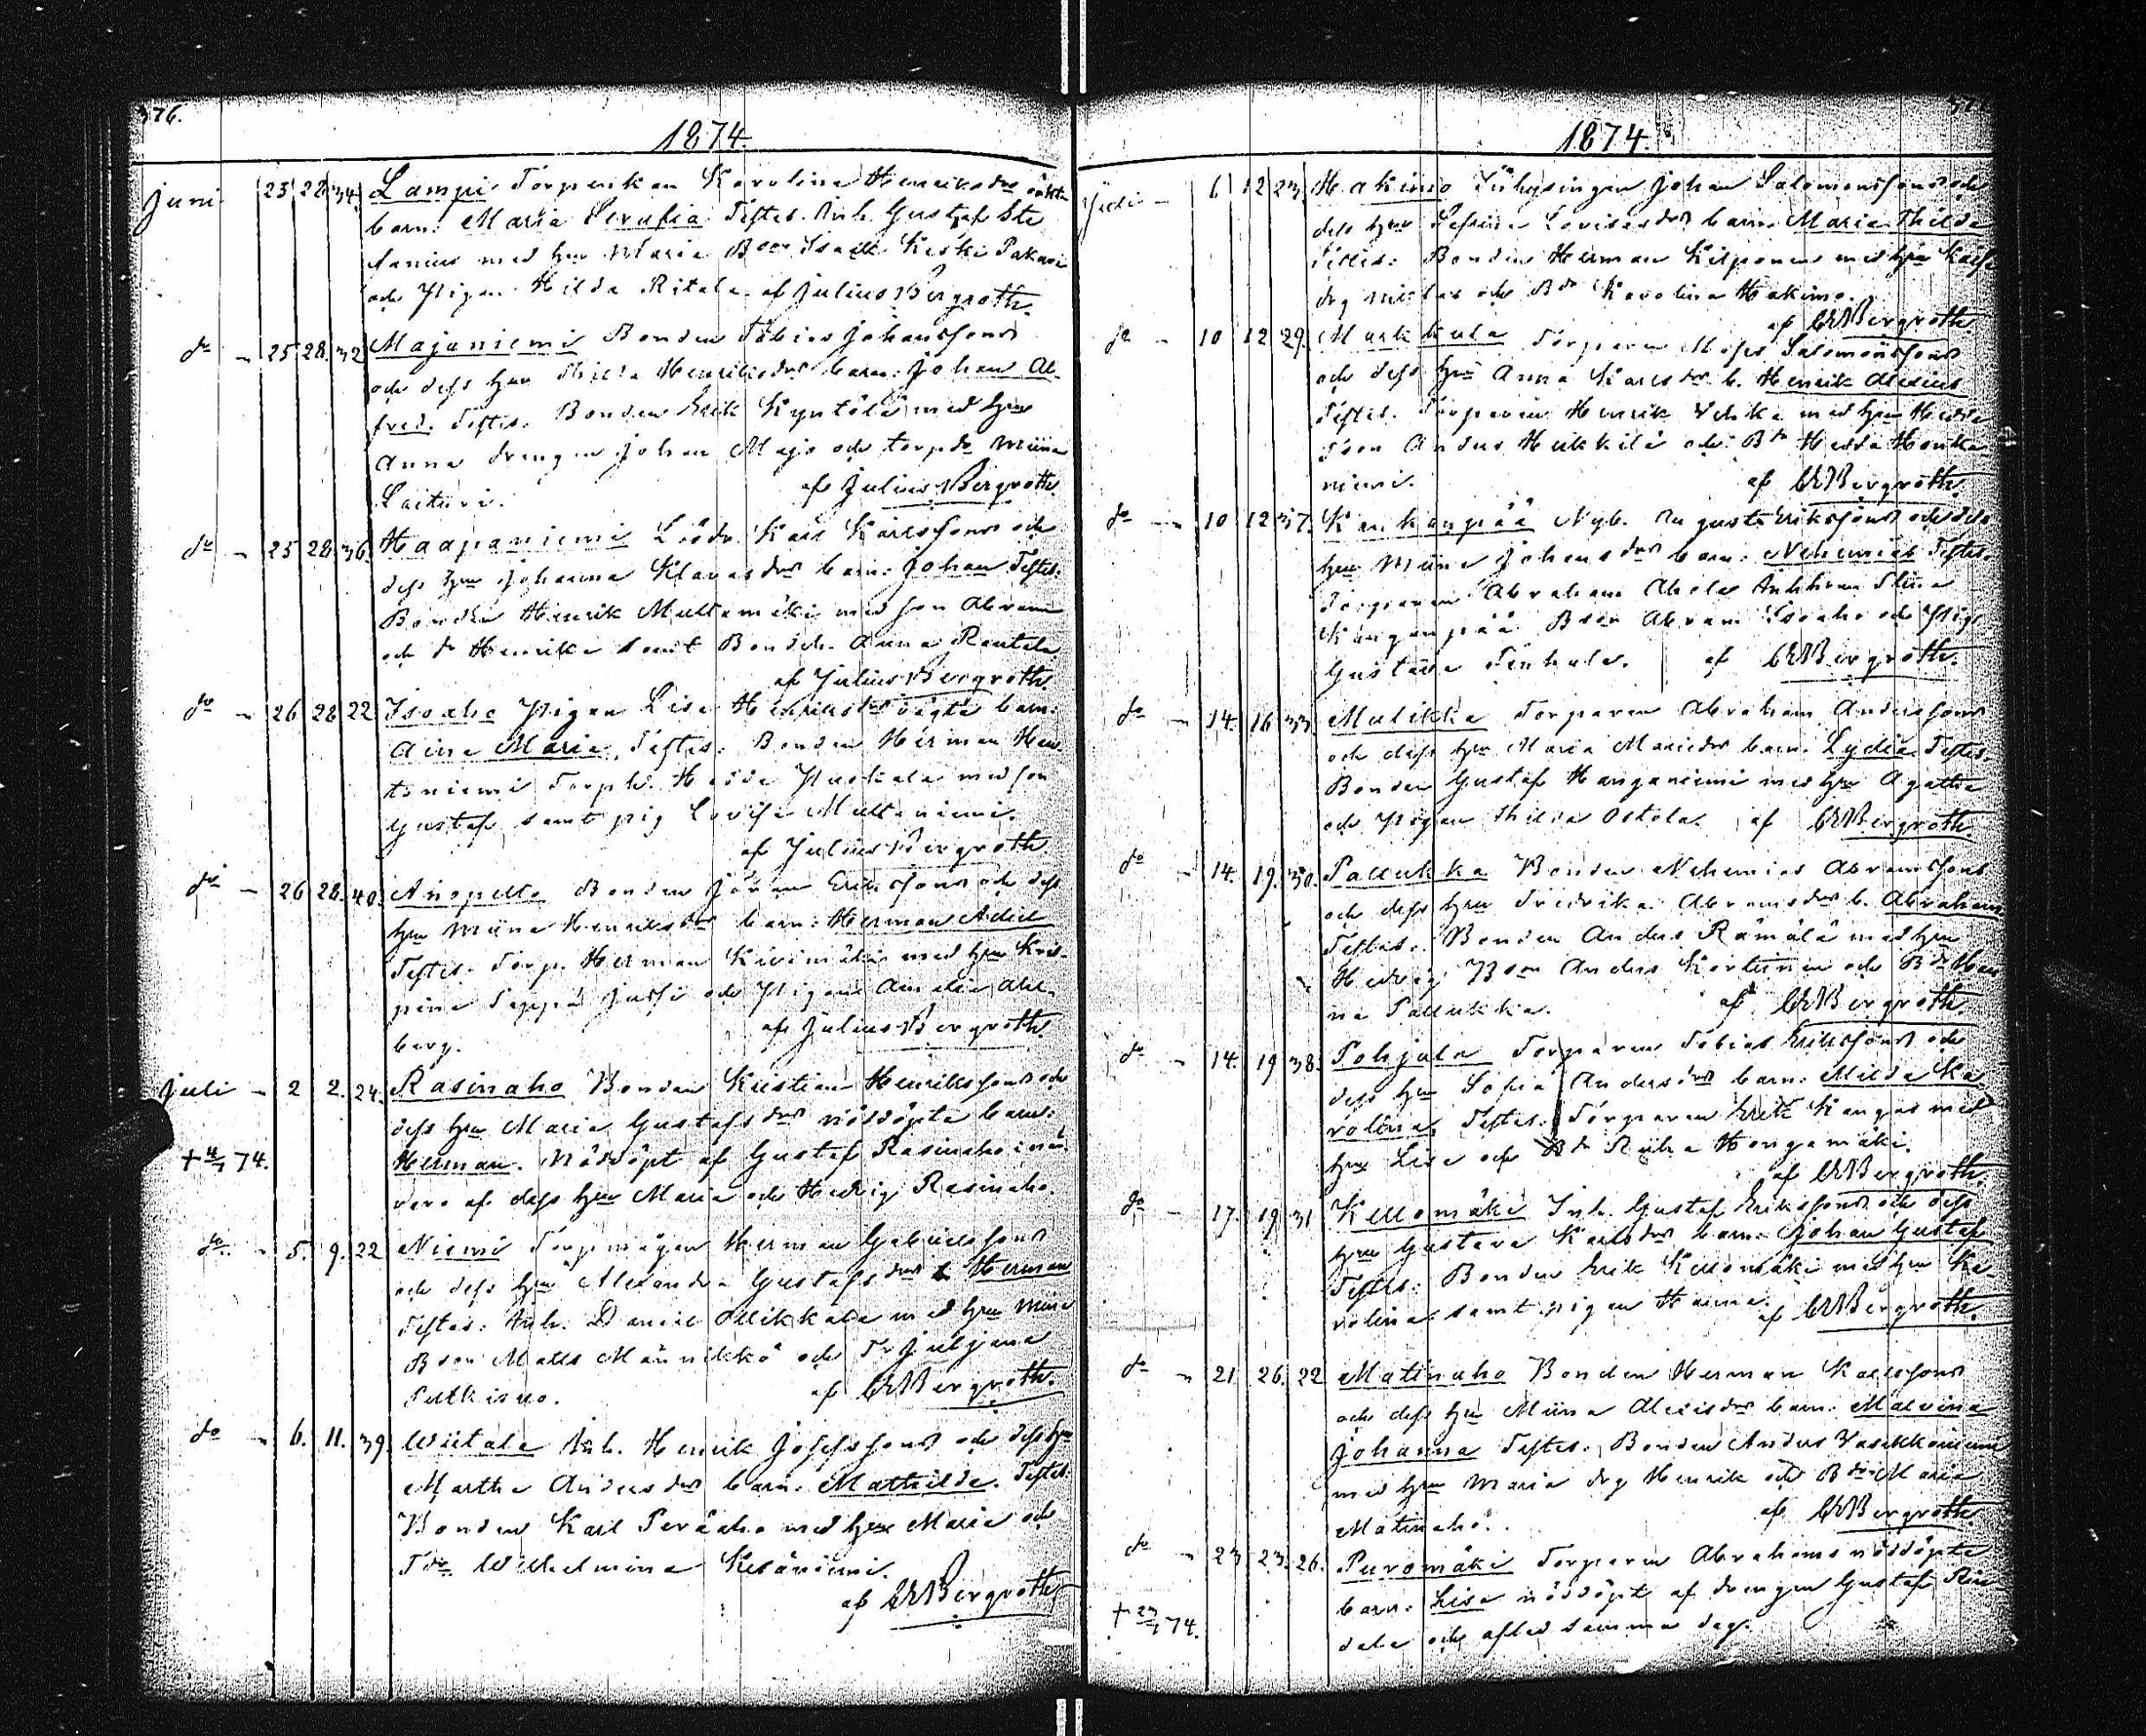 376.
1874.
Juni 25 28 34. Lampi Torpenkan Karolina Henriksdr oäkta
barn: Maria Serafia Testes. Inh. Gustaf Ste
fanius med hru Maria Bson Isak Keski Pakari
och Pigan Hilda Ritala. af Julius Bergroth.
do 25 28. 32 Majaniemi Bonden Tobias Johanssons
och dess hru Thilda Henriksdrs barn: Johan Al-
fred. Testes. Bonden Erik Kyntölä med hru
Anna drengen Johan Majo och torpdr Miina
Laituri. af Julius Bergroth.
do 25 28 36. Haapaniemi Karl Karlssons och
dess hru Johanna Klavasdrs barn: Johan Testes:
Bonden Henrik Multamäki med son Abram
och dr Henrika samt Bondedr. Anna Rantala
af Julius Bergroth.
do 26 28 22 Isoaho Pigan Lisa Henriksdrs oägta barn:
Aina Maria. Testes: Bonden Herman Hau-
taniemi Hedda Puskala med son
Gustaf samt pig Lovisa Multaniemi.
af Julius Bergroth.
do 26 28. 40. Anopelto Bonden Johan Erikssons och dess
hru Miina Henriksdrs barn: Herman Adiel
Testes. Torp. Herman Kivimäki med hru Kris-
pina Seppä Jussi och Pigan Amalia Ahl-
berg. af Julius Bergroth.
Juli 2 2. 24. Rasinaho Bonden Kristian Henrikssons och
dess hru Maria Gustafsdrs nöddöpta barn:
+ 4/7 74. Herman. Nöddöpt af Gustaf Rasinaho i när
varo af dess hru Maria och Hedvig Rasinaho.
do 5. 9. 22 Niemi Torpmågen Herman Gabrielssons
och dess hru Alexandra Gustafsdrs b Herman
Testes: Inh. Daniel Ollikkala med hru Miina
Bson Matts Männikkö och Tr Juljana
Putkisuo. af CRBergroth.
do 6. 11. 39. Wiitala Inh. Henrik Josefssons och dess hru
Martha Andersdrs barn: Mathilda. Testes.
Bonden Karl Peräaho med hru Maria och
Tdr Wilhelmina Kesäniemi.
af CRBergroth
1874.
Juli 6 12 23. Hakimo Inhysingen Johan Salomonssons och
dess hru Sefina Lovisasdrs barn: Maria Thilda
Testes: Bonden Herman Kilponen med hru Kaisa
drg Niklas och Bdr Karolina Hakimo.
af CRBergroth.
do 10 12 29. Markkula Torparen Moses Salomonssons
och dess hru Anna Karlsdrs b. Henrik Alexius
Testes. Torparen Henrik med hru Hedda
Tson Anders Heikkilä och Bdr Hedda Honka-
niemi. af CRBergroth.
do 10 12 37. Kankanpää Nyb. August Erikssons och dess
hru Miina Johansdrs barn: Nehemias Testes.
Torparen Abraham Ahola Stina
Kangaspää Bson Abram Isoaho och Pig.
Gustava af CRBergroth.
do 14. 16 33 Mulikka Torparen Abraham Anderssons
och dess hru Maria Mariedrs barn. Lydia Testes.
Bonden Gustaf Hanganiemi med hru Agatha
och Pigan Thilda Ostola. af CRBergroth.
do 14. 19. 30. Pallukka Bonden Nehemias Abramssons
och dess hru Fredrika Abramsdrs b. Abraham
Testes. Bonden Anders Rämälä med hru
Hedvig Bson Anders Kortunen och Bdr Han
na Pallukka. af CRBergroth.
do 14. 19 38. Pohjala Torparen Tobias Erikssons och
dess hru Sofia Andersdrs barn: Milda Ka-
rolina. Testes. Torparen Erik Kangas med
hru Lisa och Bdr Riika Hongamäki.
af CRBergroth.
do 17. 19 31 Kellomäki Inh. Gustaf Erikssons och dess
hru Gustava Karlsdrs barn: Johan Gustaf
Testes: Bonden Erik Kellomäki med hru Ka-
rolina samt pigan Hanna. af CRBergroth.
do 21 26. 22 Matinaho Bonden Herman Karlssons
och dess hru Miina Alexisdrs barn: Malvina
Johanna Testes. Bonden Anders Vasikkaniemi
med hru Maria drg Henrik och Bdr Maria
Matinaho. af CRBergroth.
do 23 23. 26. Puromäki Torparen Abrahams nöddöpta
barn: Lisa nöddöpt af drengen Gustaf Rin
+ 23/7 74. dala och afled samma dag.